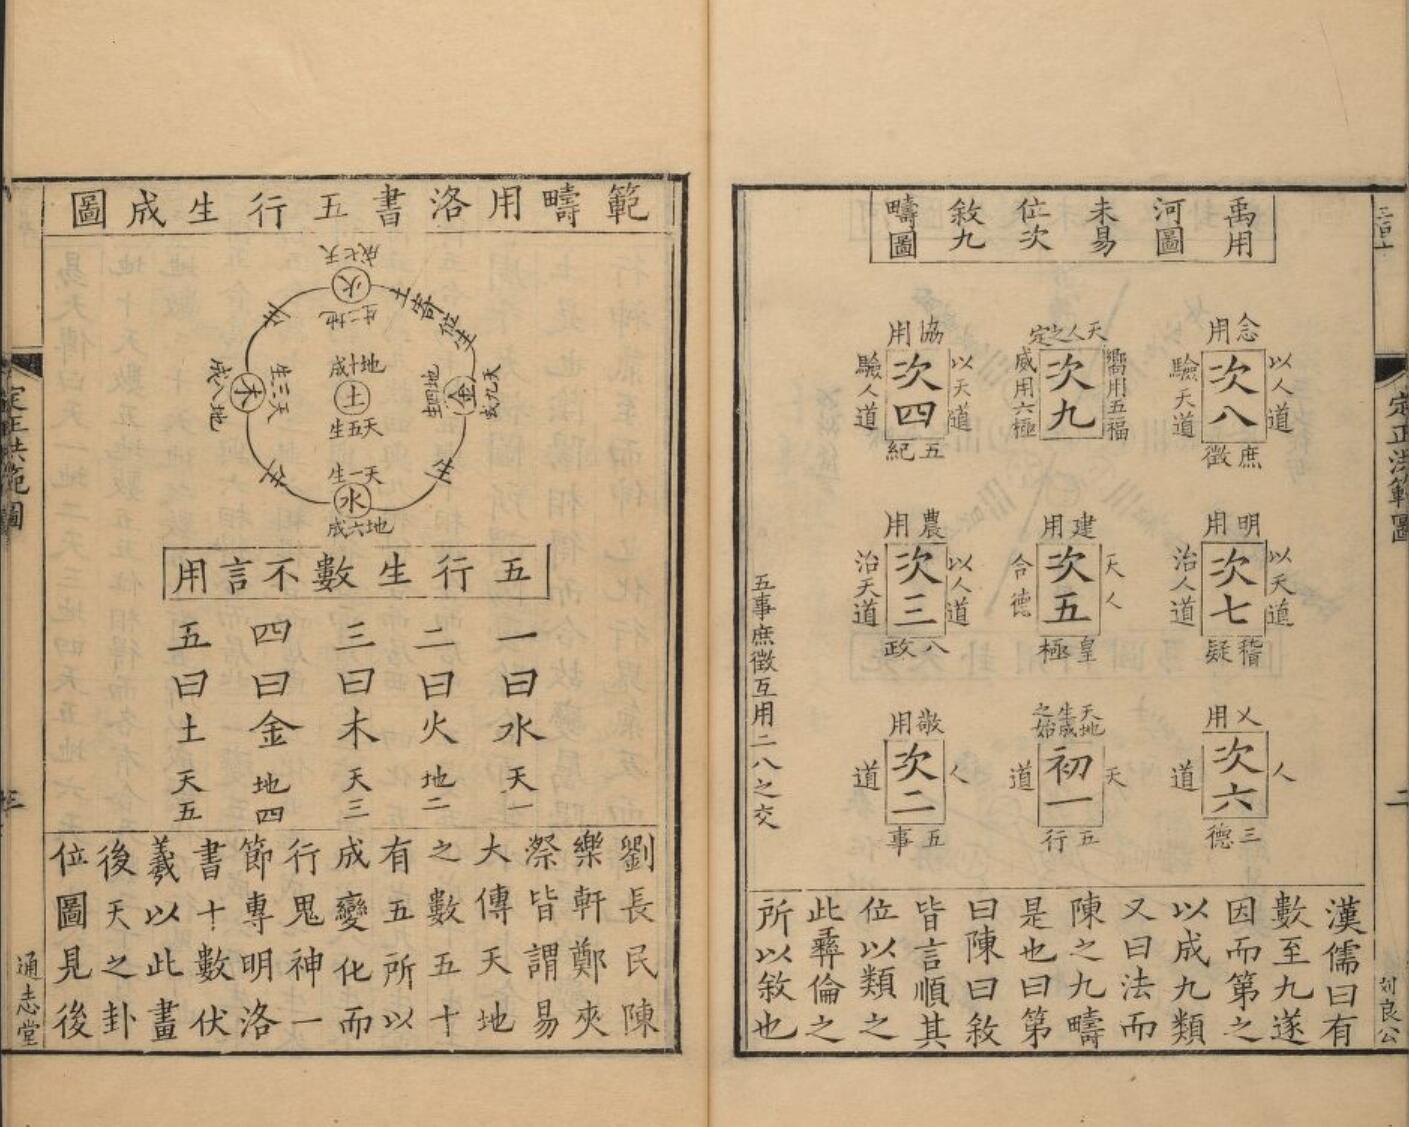 禹用
河圖
未易
位次
敘九
疇圖
念用
以人道
次八
驗天道
庶徵
天人之定
嚮用五福
次九
威用六極
協用
以天道
次四
驗人道
五紀
明用
以天道
次七
治人道
稽疑
建用
天人
次五
合德
皇極
農用
以人道
次三
治天道
八政
乂用
人
次六
道
三德
天地生成之始
天
初一
道
五行
敬用
人
次二
道
五事
五事庶徵互用二八之交
漢儒曰有
數至九遂
因而第之
以成九類
又曰法而
陳之九疇
是也曰第
曰陳曰敘
皆言順其
位以類之
此彝倫之
所以敘也
定正洪範圖
二
範疇用洛書五行生成圖
天七成
火
地二生
土寄位生
天九成
金
地四生
地十成
土
天五生
天三生
木
地八成
天一生
水
地六成
生
生
生
五行生數不言用
一曰水 天一
二曰火 地二
三曰木 天三
四曰金 地四
五曰土 天五
劉長民陳
樂軒鄭夾
漈皆謂易
大傳天地
之數五十
有五所以
成變化而
行鬼神一
節專明洛
書十數伏
羲以此畫
後天之卦
位圖見後
定正洪範圖
通志堂